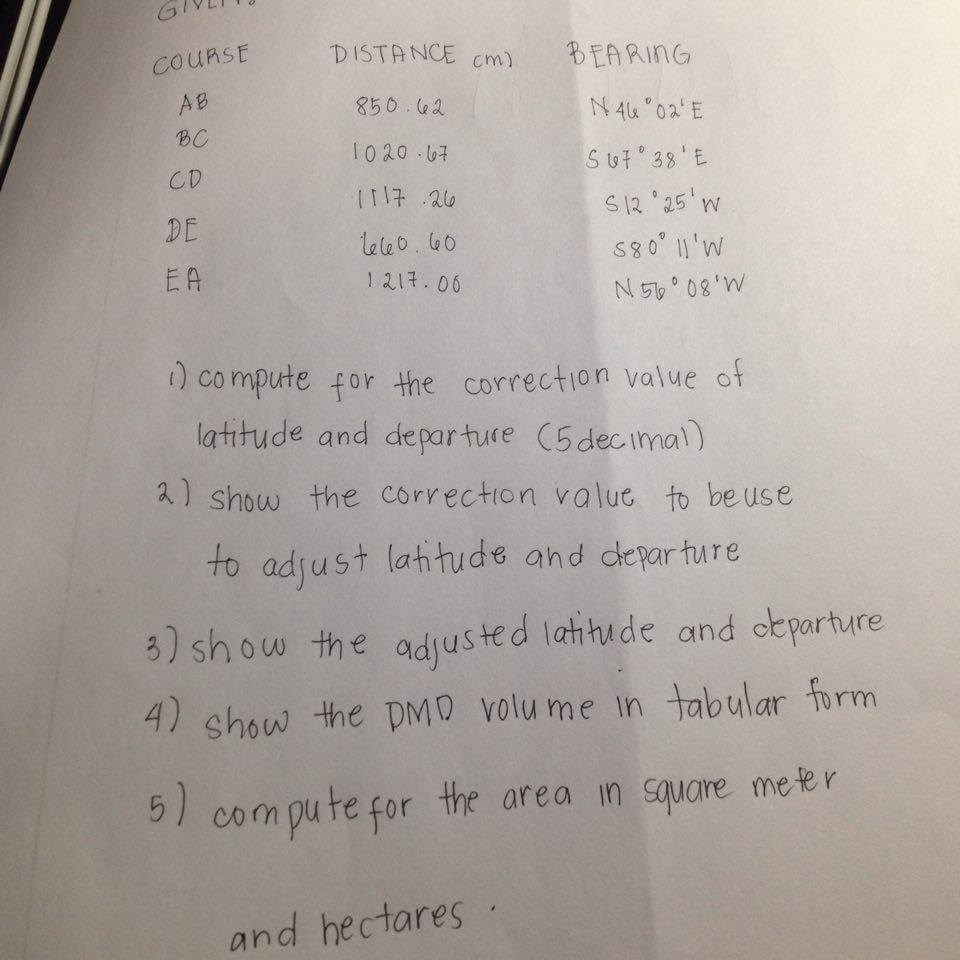 GIVEN:
COURSE DISTANCE (m) BEARING
AB 850.62 N 46°02'E
BC 1020.67 S 67°38'E
CD 1117.26 S12°25'W
DE 660.60 S80°11'W
EA 1217.00 N 56°08'W
1) compute for the correction value of
latitude and departure (5 decimal)
2) show the correction value to be use
to adjust latitude and departure
3) show the adjusted latitude and departure
4) show the DMD volume in tabular form
5) compute for the area in square meter
and hectares.